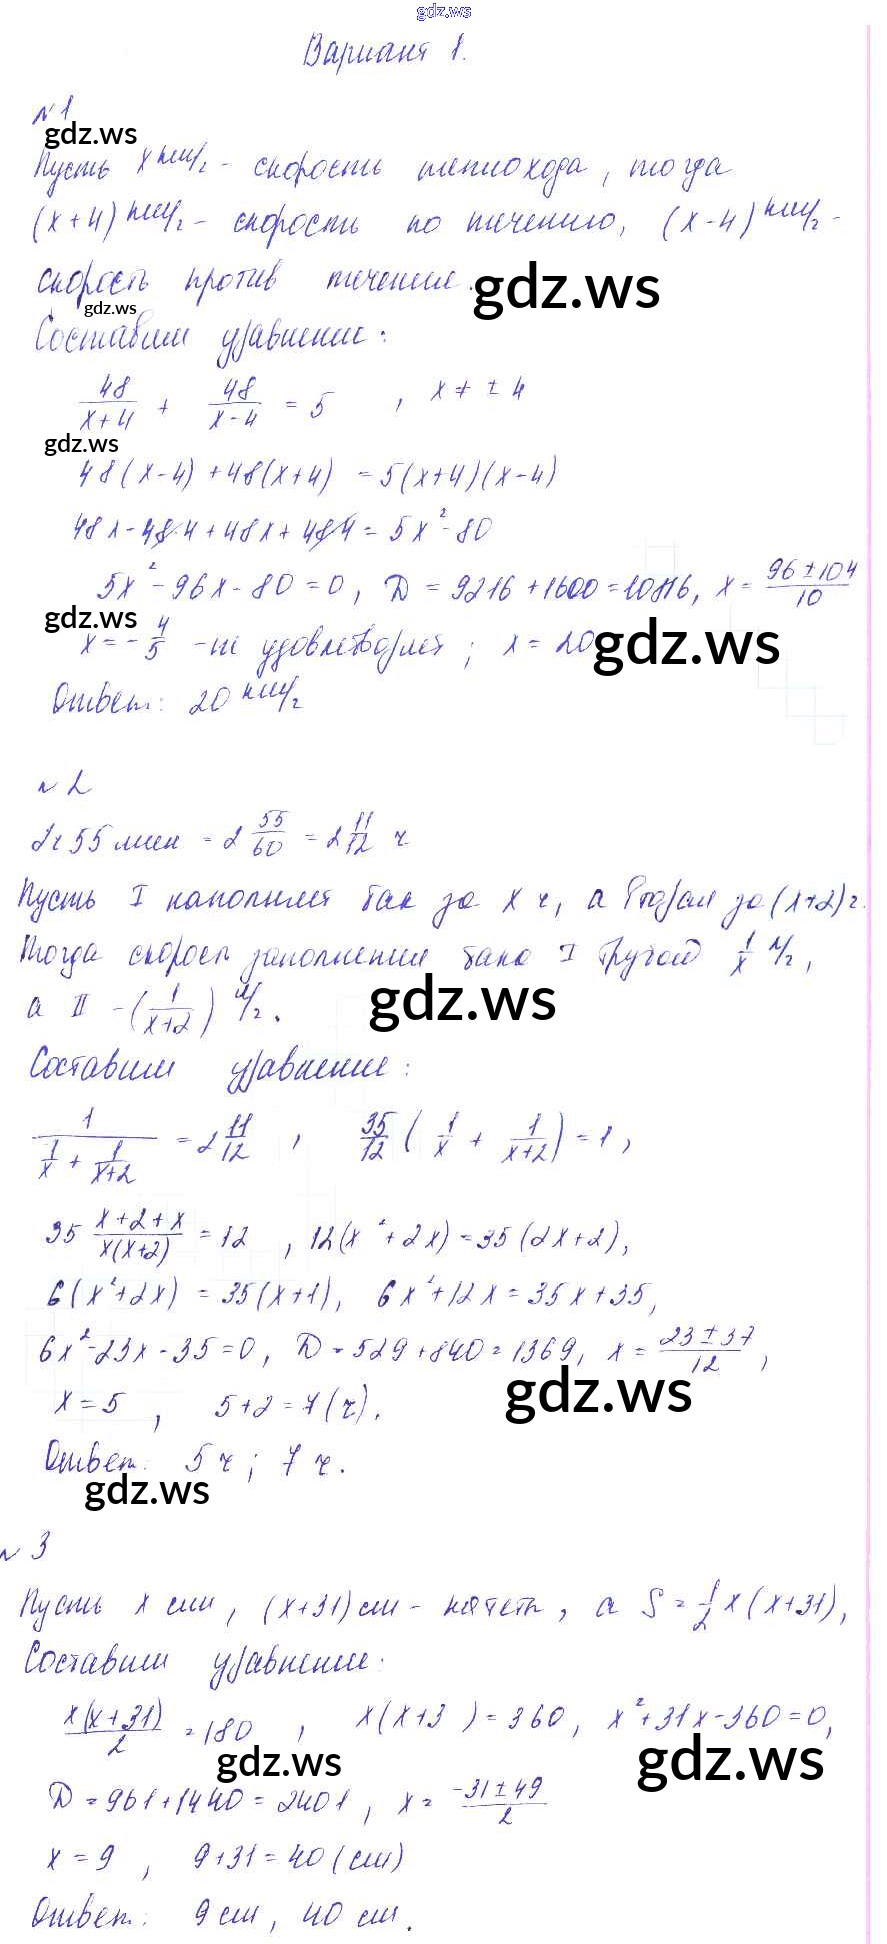 gdz.ws
Вариант 1.
№1
gdz.ws
Пусть x км/ч - скорость теплохода, тогда
(x+4) км/ч - скорость по течению, (x-4) км/ч -
скорость против течение.
gdz.ws
gdz.ws
Составим уравнение:
48/(x+4) + 48/(x-4) = 5 , x ≠ ± 4
gdz.ws
48(x-4)+48(x+4) = 5(x+4)(x-4)
48x-48·4+48x+48·4 = 5x²-80
5x²-96x-80=0, D=9216+1600=10816, x = (96±104)/10
gdz.ws
x = -4/5 - не удовлетворяет; x = 20
gdz.ws
Ответ: 20 км/ч
№2
2ч 55 мин = 2 55/60 = 2 11/12 ч
Пусть I наполняет бак за x ч, а вторая за (x+2)ч.
Тогда скорость заполнения бака I трубой 1/x л/ч,
а II - (1/(x+2)) л/ч.
gdz.ws
Составим уравнение:
1/(1/x + 1/(x+2)) = 2 11/12 , 35/12 (1/x + 1/(x+2)) = 1,
35 (x+2+x)/(x(x+2)) = 12 , 12(x²+2x)=35(2x+2),
6(x²+2x) = 35(x+1), 6x²+12x=35x+35,
6x²-23x-35=0, D=529+840=1369, x = (23±37)/12,
gdz.ws
x = 5 , 5+2=7(ч).
Ответ: 5 ч; 7 ч.
gdz.ws
№3
Пусть x см, (x+31) см - катеты, а S = 1/2 x(x+31),
Составим уравнение:
x(x+31)/2 = 180 , x(x+3 )=360, x²+31x-360=0,
gdz.ws
gdz.ws
D=961+1440=2401, x = (-31±49)/2
x=9 , 9+31=40(см)
Ответ: 9 см, 40 см.